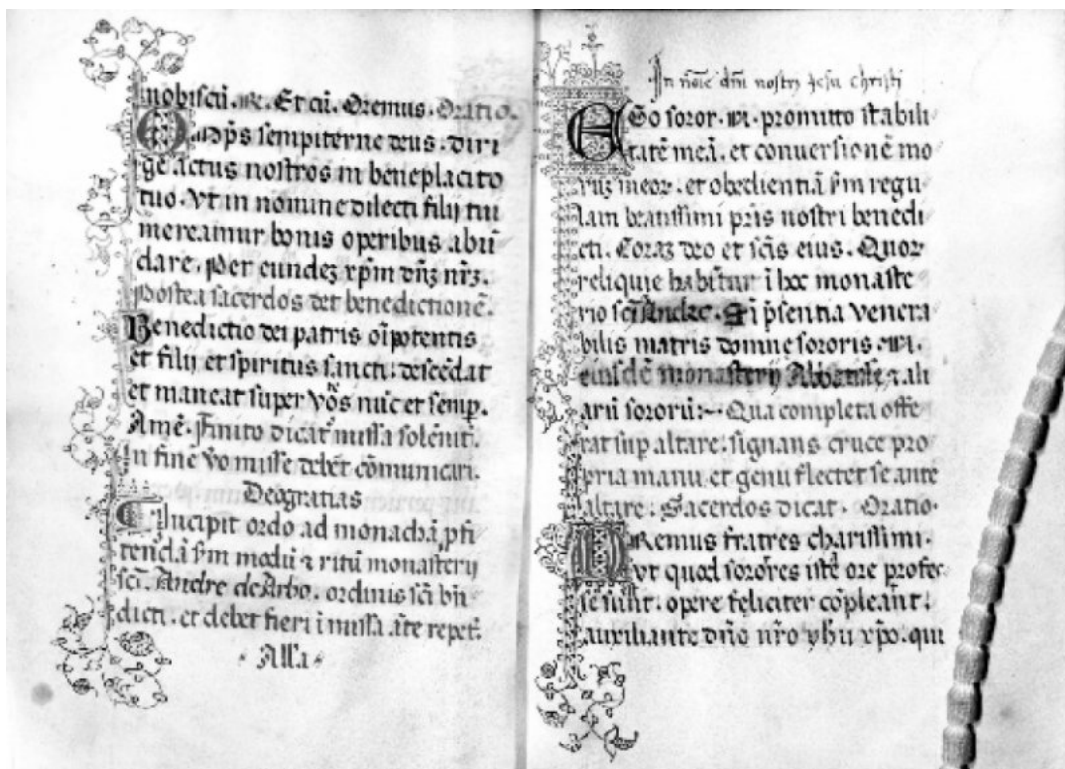 nobiscū. Et cū. Oremus. Oratio.
Omīps sempiterne deus. diri
ge actus nostros in beneplacito
tuo. Vt in nomine dilecti filij tui
mereamur bonis operibus abū
dare. Per eundeȝ xp̄m dn̄ȝ nr̄ȝ.
Postea sacerdos det benedictionē.
Benedictio dei patris oīpotentis
et filij et spiritus sancti. descēdat
et maneat super vos nūc et semp̄.
Amē. Finito dicat᷑ missa solēnit᷑.
In fine vo misse debēt cōmunicari.
Deogratias
Incipit ordo ad monachā pfi
tendā s̄m modū ⁊ ritū monasterij
scī. Andree de Arbo. ordinis scī bn̄
dicti. et debet fieri ī missa āte repet᷑.
Alla
In noīe dn̄i nostrj yesu christi
EGo soror. promitto stabili
tatē meā. et conversionē mo
ruȝ meoꝝ. et obedientiā s̄m regu
lam beatissimi pr̄is nostri benedi
cti. Coraȝ deo et scīs eius. Quoꝝ
reliquie habētur ī hoc monaste
rio scī Andree. p̄sentia venera
bilis matris domne sororis.
eiusdē monasterij Abbatisse ⁊ ali
arū sororū:~ Qua completa offe
rat sup altare. signans cruce pro
pria manu et genu flectet se ante
altare. Sacerdos dicat. Oratio.
ORemus fratres charissimi.
vt quod sorores iste ore profes
se sunt. opere feliciter cōpleant.
auxiliante dn̄o nr̄o yhū xp̄o. qui